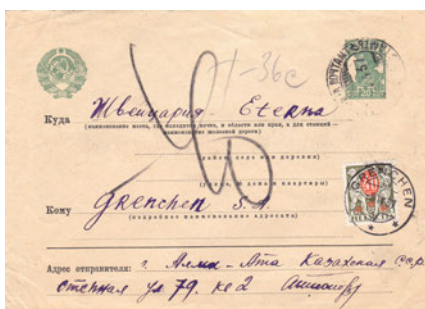 T-36c
Куда Швейцария Eterna
(наименование места, где находится почта, и области или края, а для станций — наименование железной дороги)
(район, село или деревня)
(улица, № дома и квартиры)
Кому Grenchen S.A.
(подробное наименование адресата)
GRENCHEN
HELVETIA
Адрес отправителя: г. Алма-Ата Казахская ССР
Степная ул 79. кв 2